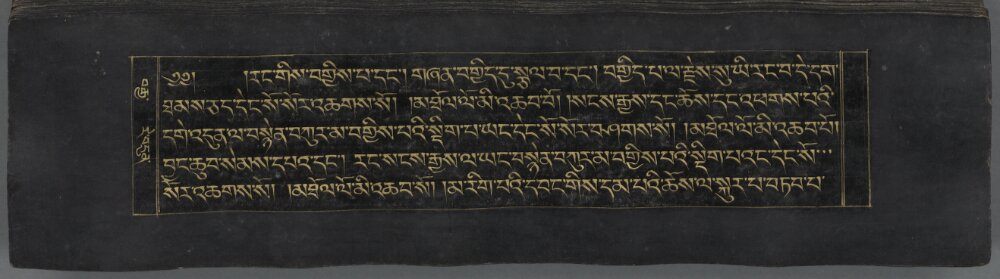 ༄༅། །རང་གིས་བགྱིས་པ་དང་། གཞན་བགྱིད་དུ་སྩལ་བ་དང་། བགྱིད་པ་ལ་རྗེས་སུ་ཡི་རང་བ་དེ་དག་
ཐམས་ཅད་དེང་སོ་སོར་འཆགས་སོ། །མཐོལ་ལོ་མི་འཆབ་བོ། །སངས་རྒྱས་དང་ཆོས་དང་འཕགས་པའི་
དགེ་འདུན་ལ་བསྙེན་བཀུར་མ་བགྱིས་པའི་སྡིག་པ་ཡང་དེང་སོ་སོར་བཤགས་སོ། །མཐོལ་ལོ་མི་འཆབ་པོ།
བྱང་ཆུབ་སེམས་དཔའ་དང་། རང་སངས་རྒྱས་ལ་ཡང་བསྙེན་བཀུར་མ་བགྱིས་པའི་སྡིག་པའང་དེང་སོ་
སོར་འཆགས་སོ། །མཐོལ་ལོ་མི་འཆབ་སོ། །མ་རིག་པའི་དབང་གིས་དམ་པའི་ཆོས་ལ་སྐུར་པ་བཏབ་པ་